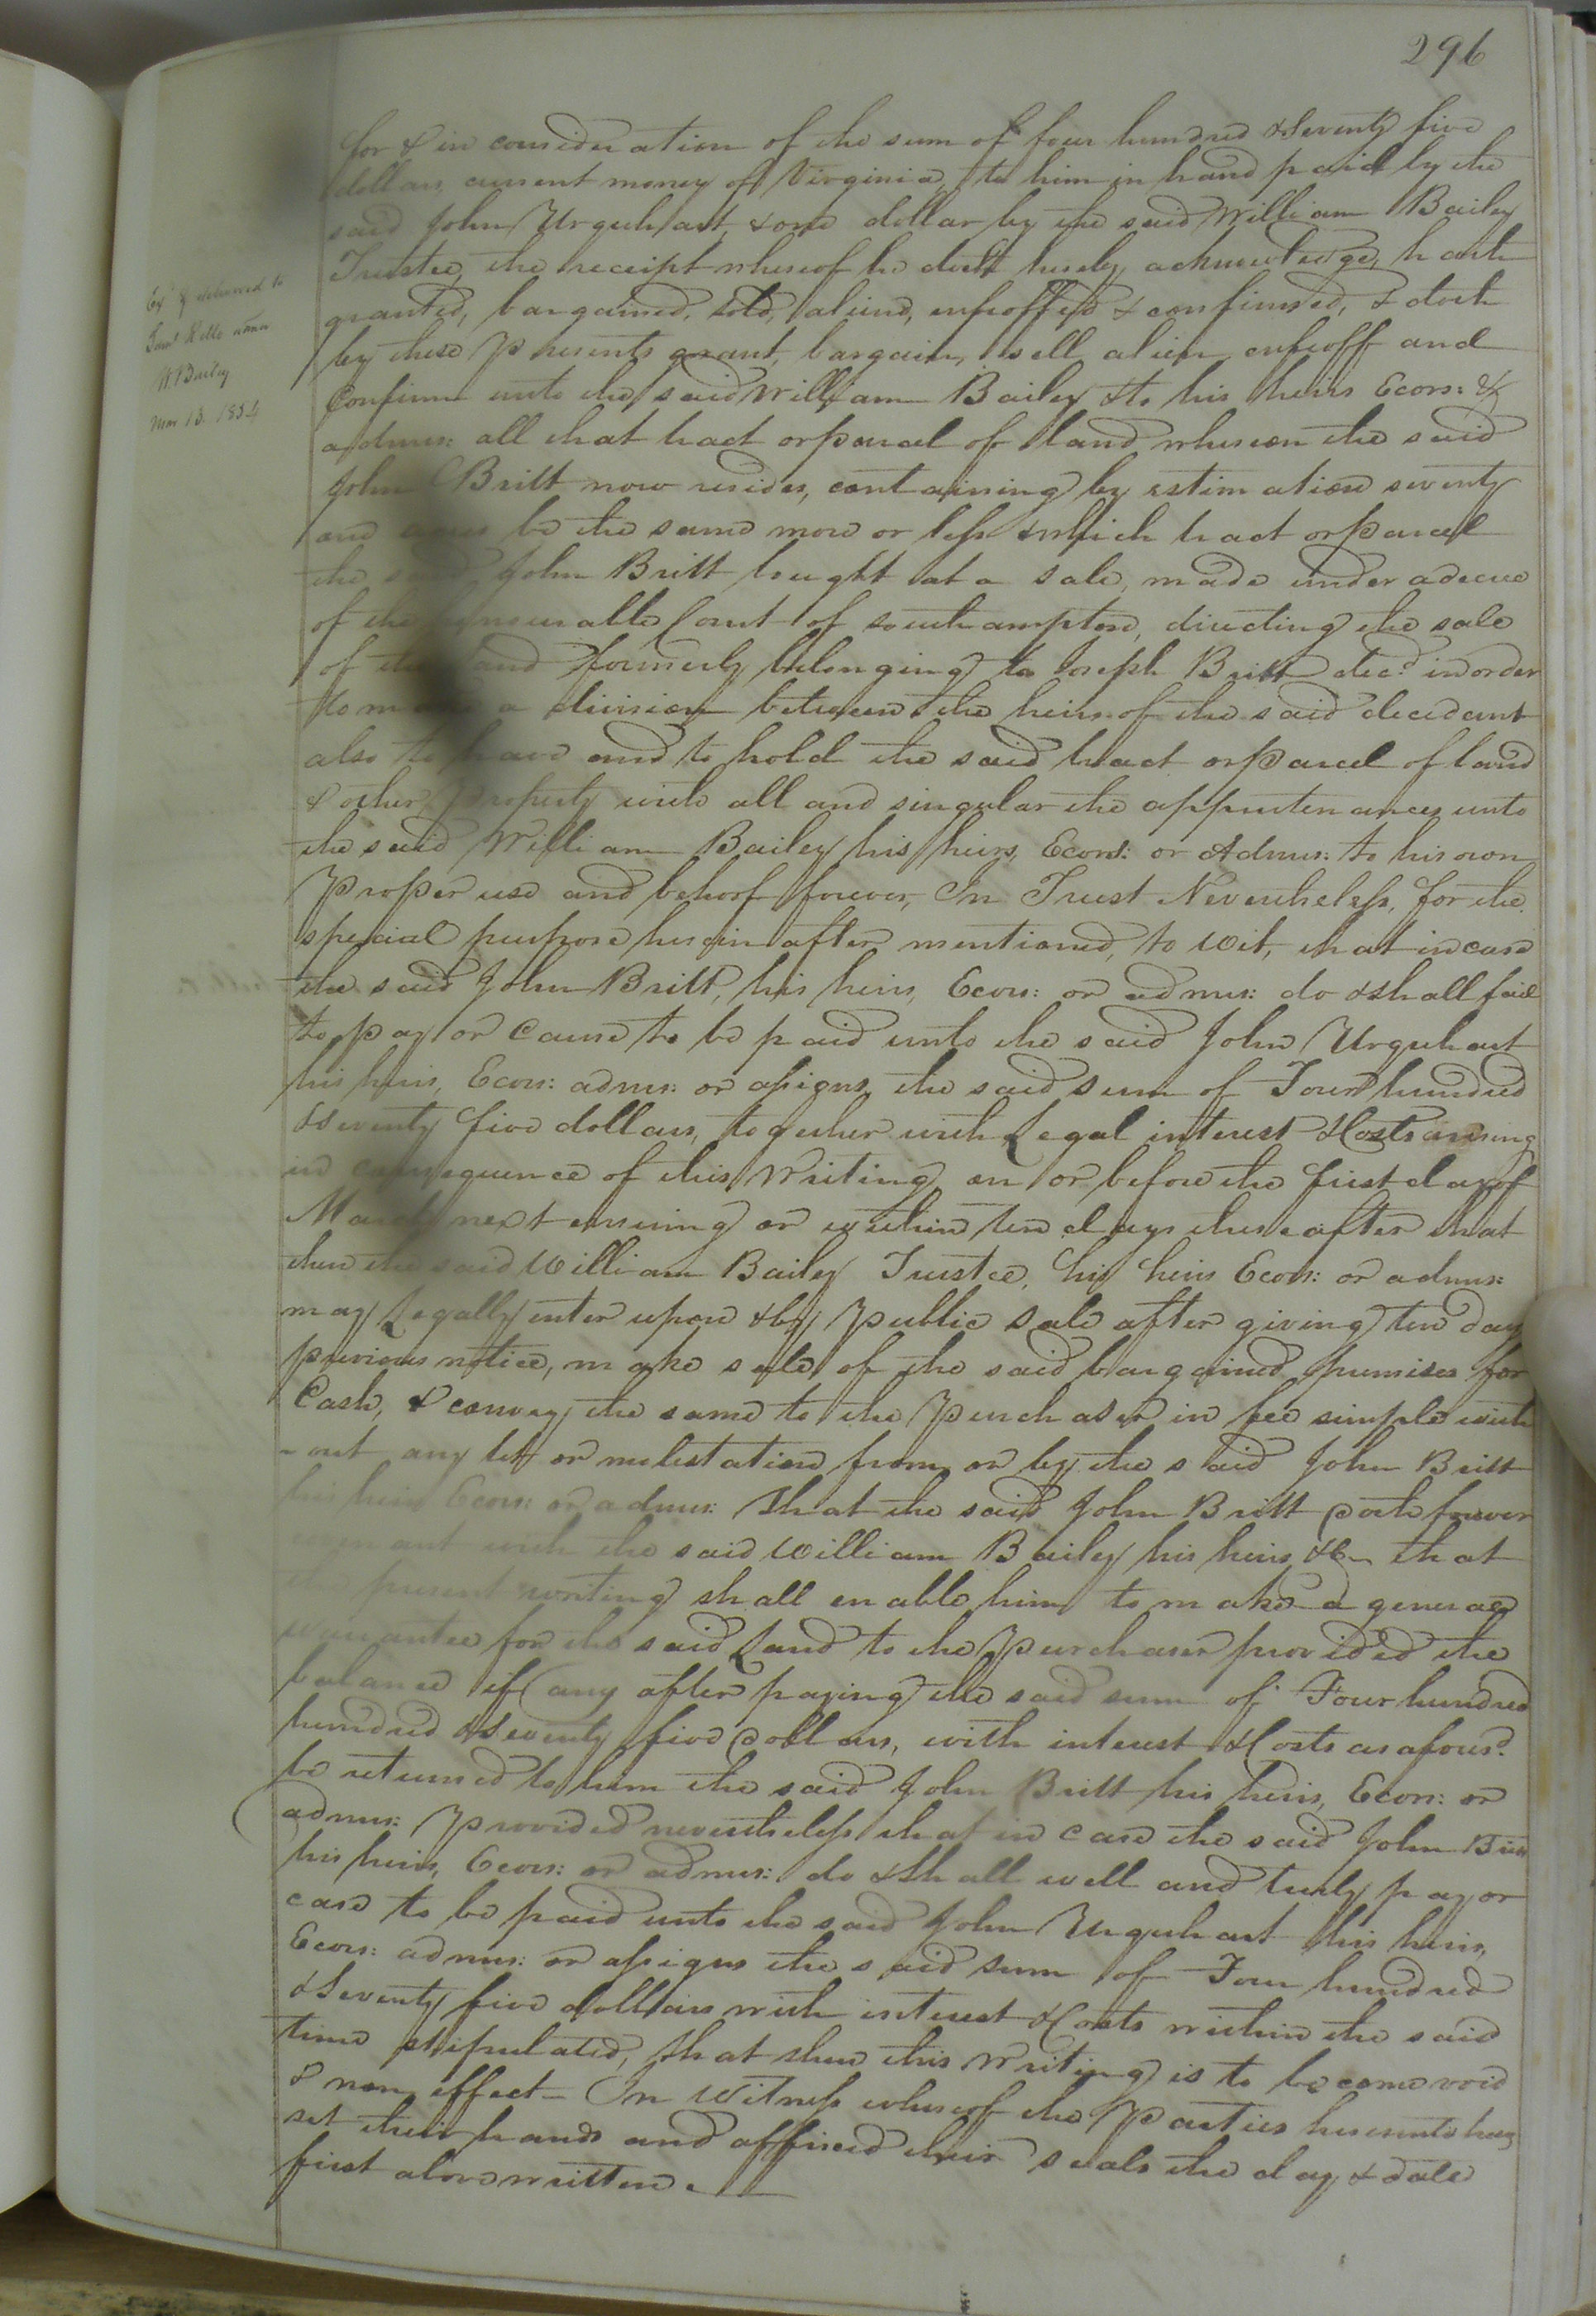 296
for & in consideration of the sum of four hundred & Seventy five
dollars current money of Virginia, to him in hand paid by the
said John Urquhart, & one dollar by the said William Bailey
Trustee, the receipt whereof he doth hereby acknowledge, hath
granted, bargained, sold, aliend, enfeoffed & confirmed, & doth
by these Presents grant, bargain, sell alien, enfeoff and
Confirm unto the said William Bailey & to his heirs Ecors: &
admrs: all that tract or parcel of land whereon the said
John Britt now resides, containing by estimation seventy
one acres be the same more or less & which tract or parcel
the said John Britt bought at a sale, made under a decree
of the honourable Court of Southampton, directing the sale
of the land formerly belonging to Joseph Britt decd. in order
to make a division between the heirs of the said decedant
also to have and to hold the said tract or parcel of land
& other property with all and singular the appurtenances unto
the said William Bailey his heirs, Ecors: or Admrs: to his own
Proper use and behoof forever, In Trust Nevertheless, for the
special purpose herein after mentioned, to wit, that in case
the said John Britt, his heirs, Ecors: or admrs: do & shall fail
to pay or cause to be paid unto the said John Urquhart
his heirs, Ecors: admrs: or assigns, the said sum of Four hundred
& seventy five dollars, together with Legal interest & Costs arising
in consequence of this Writing, on or before the first day of
March next ensuing or within ten days thereafter that
then the said William Bailey Trustee, his heirs Ecors: or admrs:
may Legally enter upon & by Public Sale after giving ten days
previous notice, make sale of the said bargained premises for
Cash, & convey the same to the Purchaser in fee simple with
-out any let or molestation from or by the said John Britt
his heirs Ecors: or admrs: That the said John Britt doth forever
with the said William Bailey his heirs &c that
present writing shall enable him to make a general
warrantee for the said Land to the Purchaser provided the
balance if any after paying the said sum of Four hundred
hundred & Seventy five dollars, with interest & Costs as aforesd.
be returned to him the said John Britt his heirs, Ecors: or
admrs: Provided nevertheless that in case the said John Britt
his heirs, Ecors: or admrs: do & Shall well and truly pay or
case to be paid unto the said John Urquhart his heirs,
Ecors: admrs: or assigns the said sum of Four hundred
& Seventy five dollars with interest & Costs within the said
time stipulated, that then this Writing is to become void
& non effect - In Witness whereof the Parties hereunto have
set their hands and affixed their seals the day & date
first above written.
Exd. & delivered to
W. Bailey
Mar 13. 1834